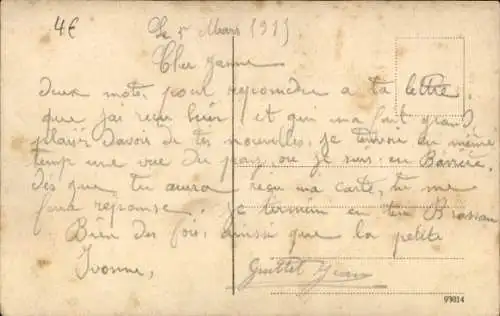 4€
Le 5 Mars 1919
Cher Janne
deux mots pour repondre a ta lettre
que j'ai reçu hier et qui ma fait grand
plaisir davoir de tes nouvelles. je tenvoi en même
temp une vue du pays ou je suis en Bavière.
dès que tu aura reçu ma carte, tu me
fera reponse. je termine en ten Brassan
Bien des fois, ainsi que la petite
Yvonne,
93014